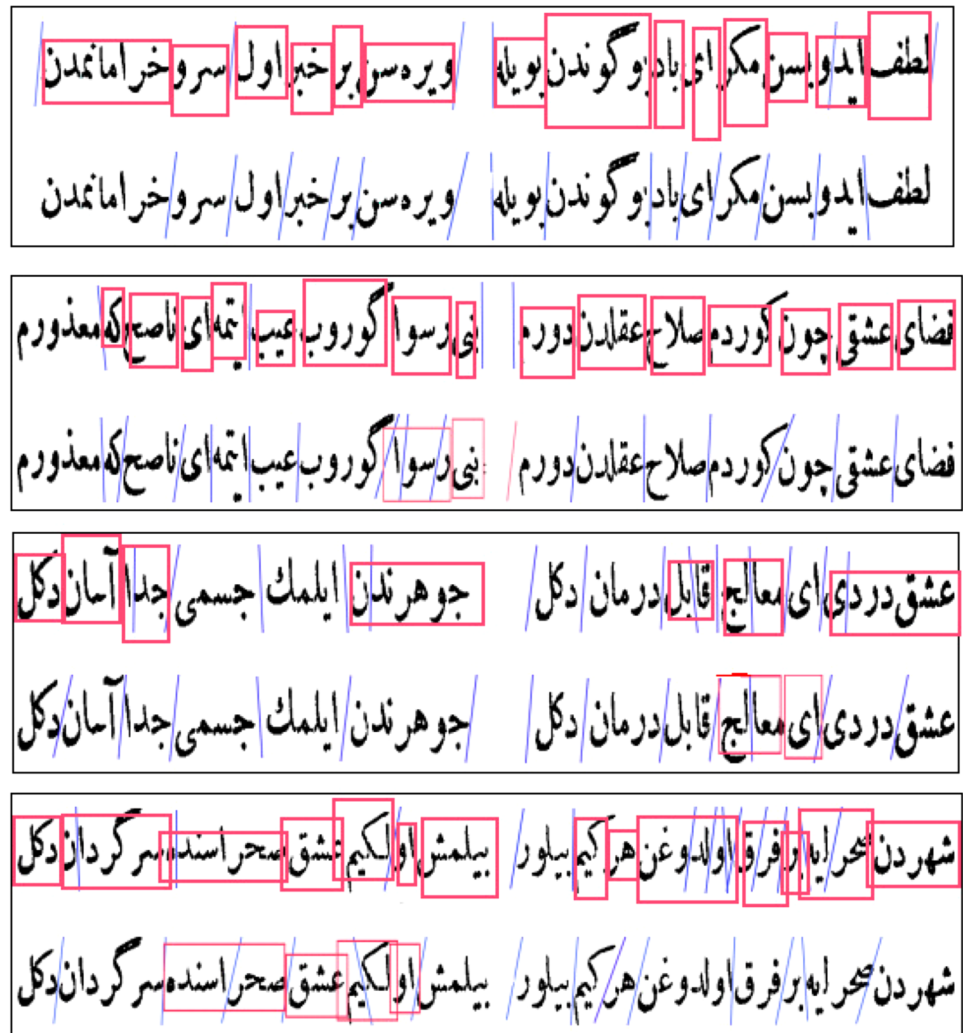 لطف ايدوبسن مكر اى باد بو گوندن بويله ويره سن بر خبر اول سرو خرامانمدن
لطف ايدوبسن مكر اى باد بو گوندن بويله ويره سن بر خبر اول سرو خرامانمدن
فضاى عشقى چون كوردم صلاح عقلدن دورم بنى رسوا گوروب عيب ايتمه اى ناصح كه معذورم
فضاى عشقى چون كوردم صلاح عقلدن دورم بنى رسوا گوروب عيب ايتمه اى ناصح كه معذورم
عشق دردى اى معالج قابل درمان دكل جوهرندن ايلمك جسمى جدا آسان دكل
عشق دردى اى معالج قابل درمان دكل جوهرندن ايلمك جسمى جدا آسان دكل
شهردن صحرايه بر فرق اولدوغن هر كيم بيلور بيلمش اولكيم عشق صحراسنده سرگردان دكل
شهردن صحرايه بر فرق اولدوغن هر كيم بيلور بيلمش اولكيم عشق صحراسنده سرگردان دكل